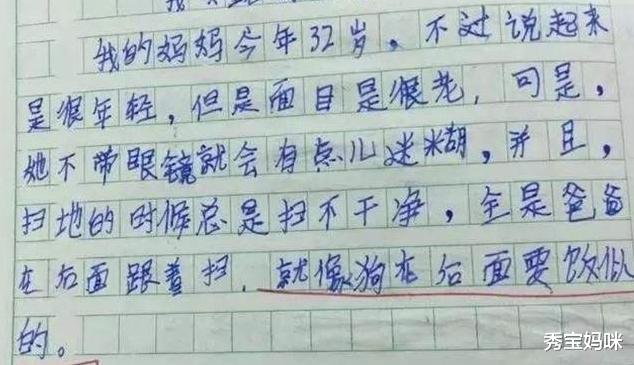 我的妈妈今年32岁。不过说起来
是很年轻，但是面目是很老，可是，
她不带眼镜就会有点儿迷糊，并且，
扫地的时候总是扫不干净，全是爸爸
在后面跟着扫，就像狗在后面要饭似
的。
秀宝妈咪